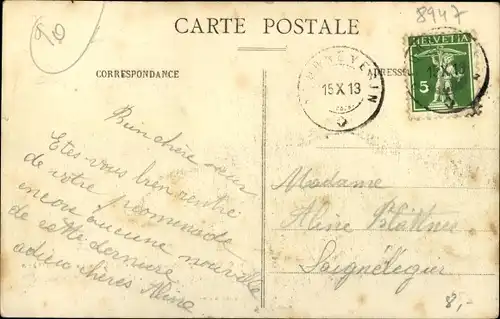 8947
9/10
CARTE POSTALE
CORRESPONDANCE
HELVETIA
5
15 X 13
Bien chère
Etes-vous bien rentré
de votre promenade
encore aucune nouvelle
de cette dernière
adieu chères Aline
Madame
Aline
Saignelégier
8,-